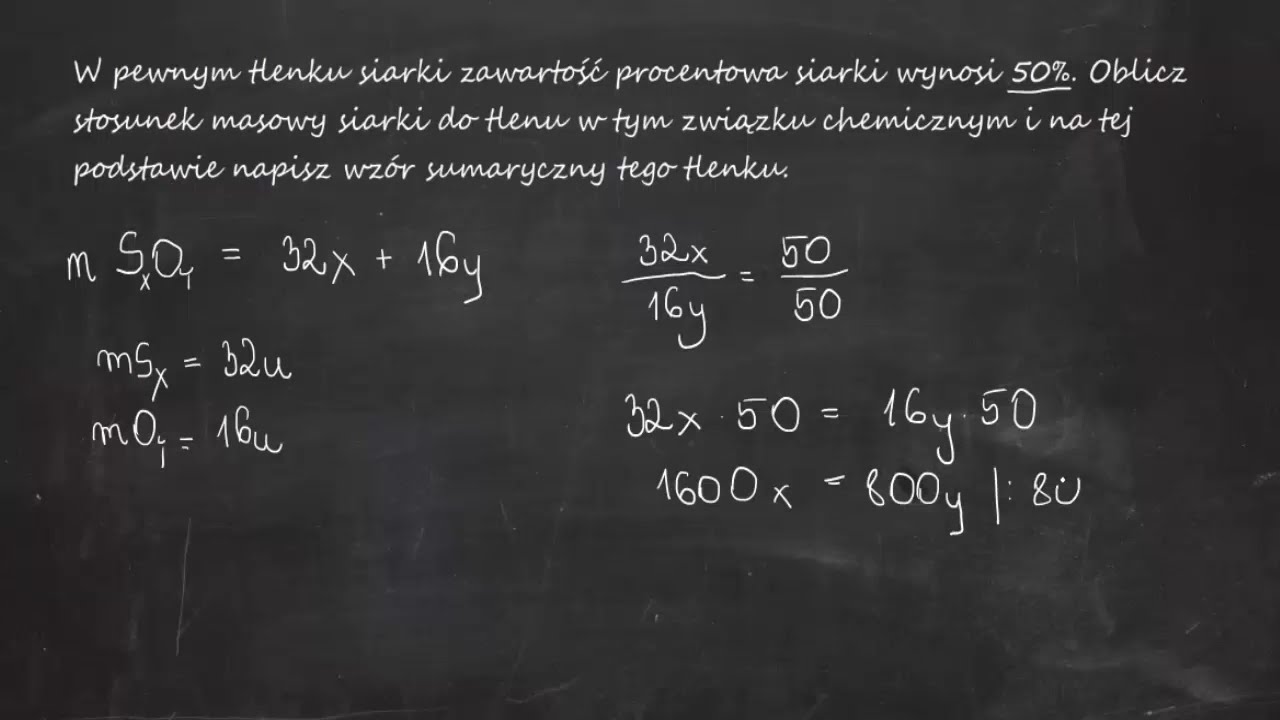 W pewnym tlenku siarki zawartość procentowa siarki wynosi 50%. Oblicz
stosunek masowy siarki do tlenu w tym związku chemicznym i na tej
podstawie napisz wzór sumaryczny tego tlenku.
m SxOy = 32x + 16y
32x/16y = 50/50
mSx = 32u
mOy = 16u
32x · 50 = 16y · 50
1600x = 800y |: 80